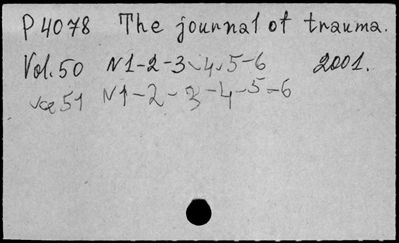 P 4078 The journal of trauma.
Vol. 50 N1-2-3-4-5-6 2001.
vol 51 N1-2-3-4-5-6